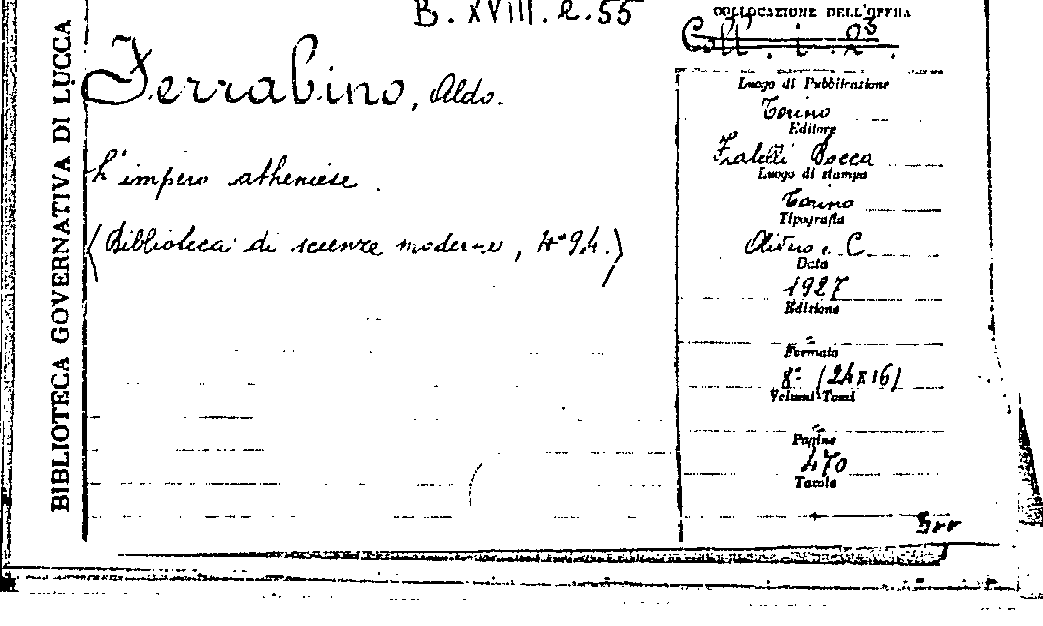 B. XVIII. e. 55
COLLOCAZIONE DELL'OPERA
BIBLIOTECA GOVERNATIVA DI LUCCA
Ferrabino, Aldo.
L'impero atheniese.
(Biblioteca di scienze moderne, nº 94.)
Luogo di Pubblicazione
Torino
Editore
Fratelli Bocca
Luogo di stampa
Torino
Tipografia
Olivero e C.
Data
1927
Edizione
Formato
8º (24x16)
Volumi-Tomi
Pagine
470
Tavole